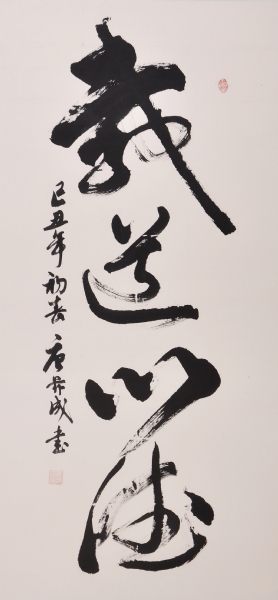 載道以德
己丑年初春 成書